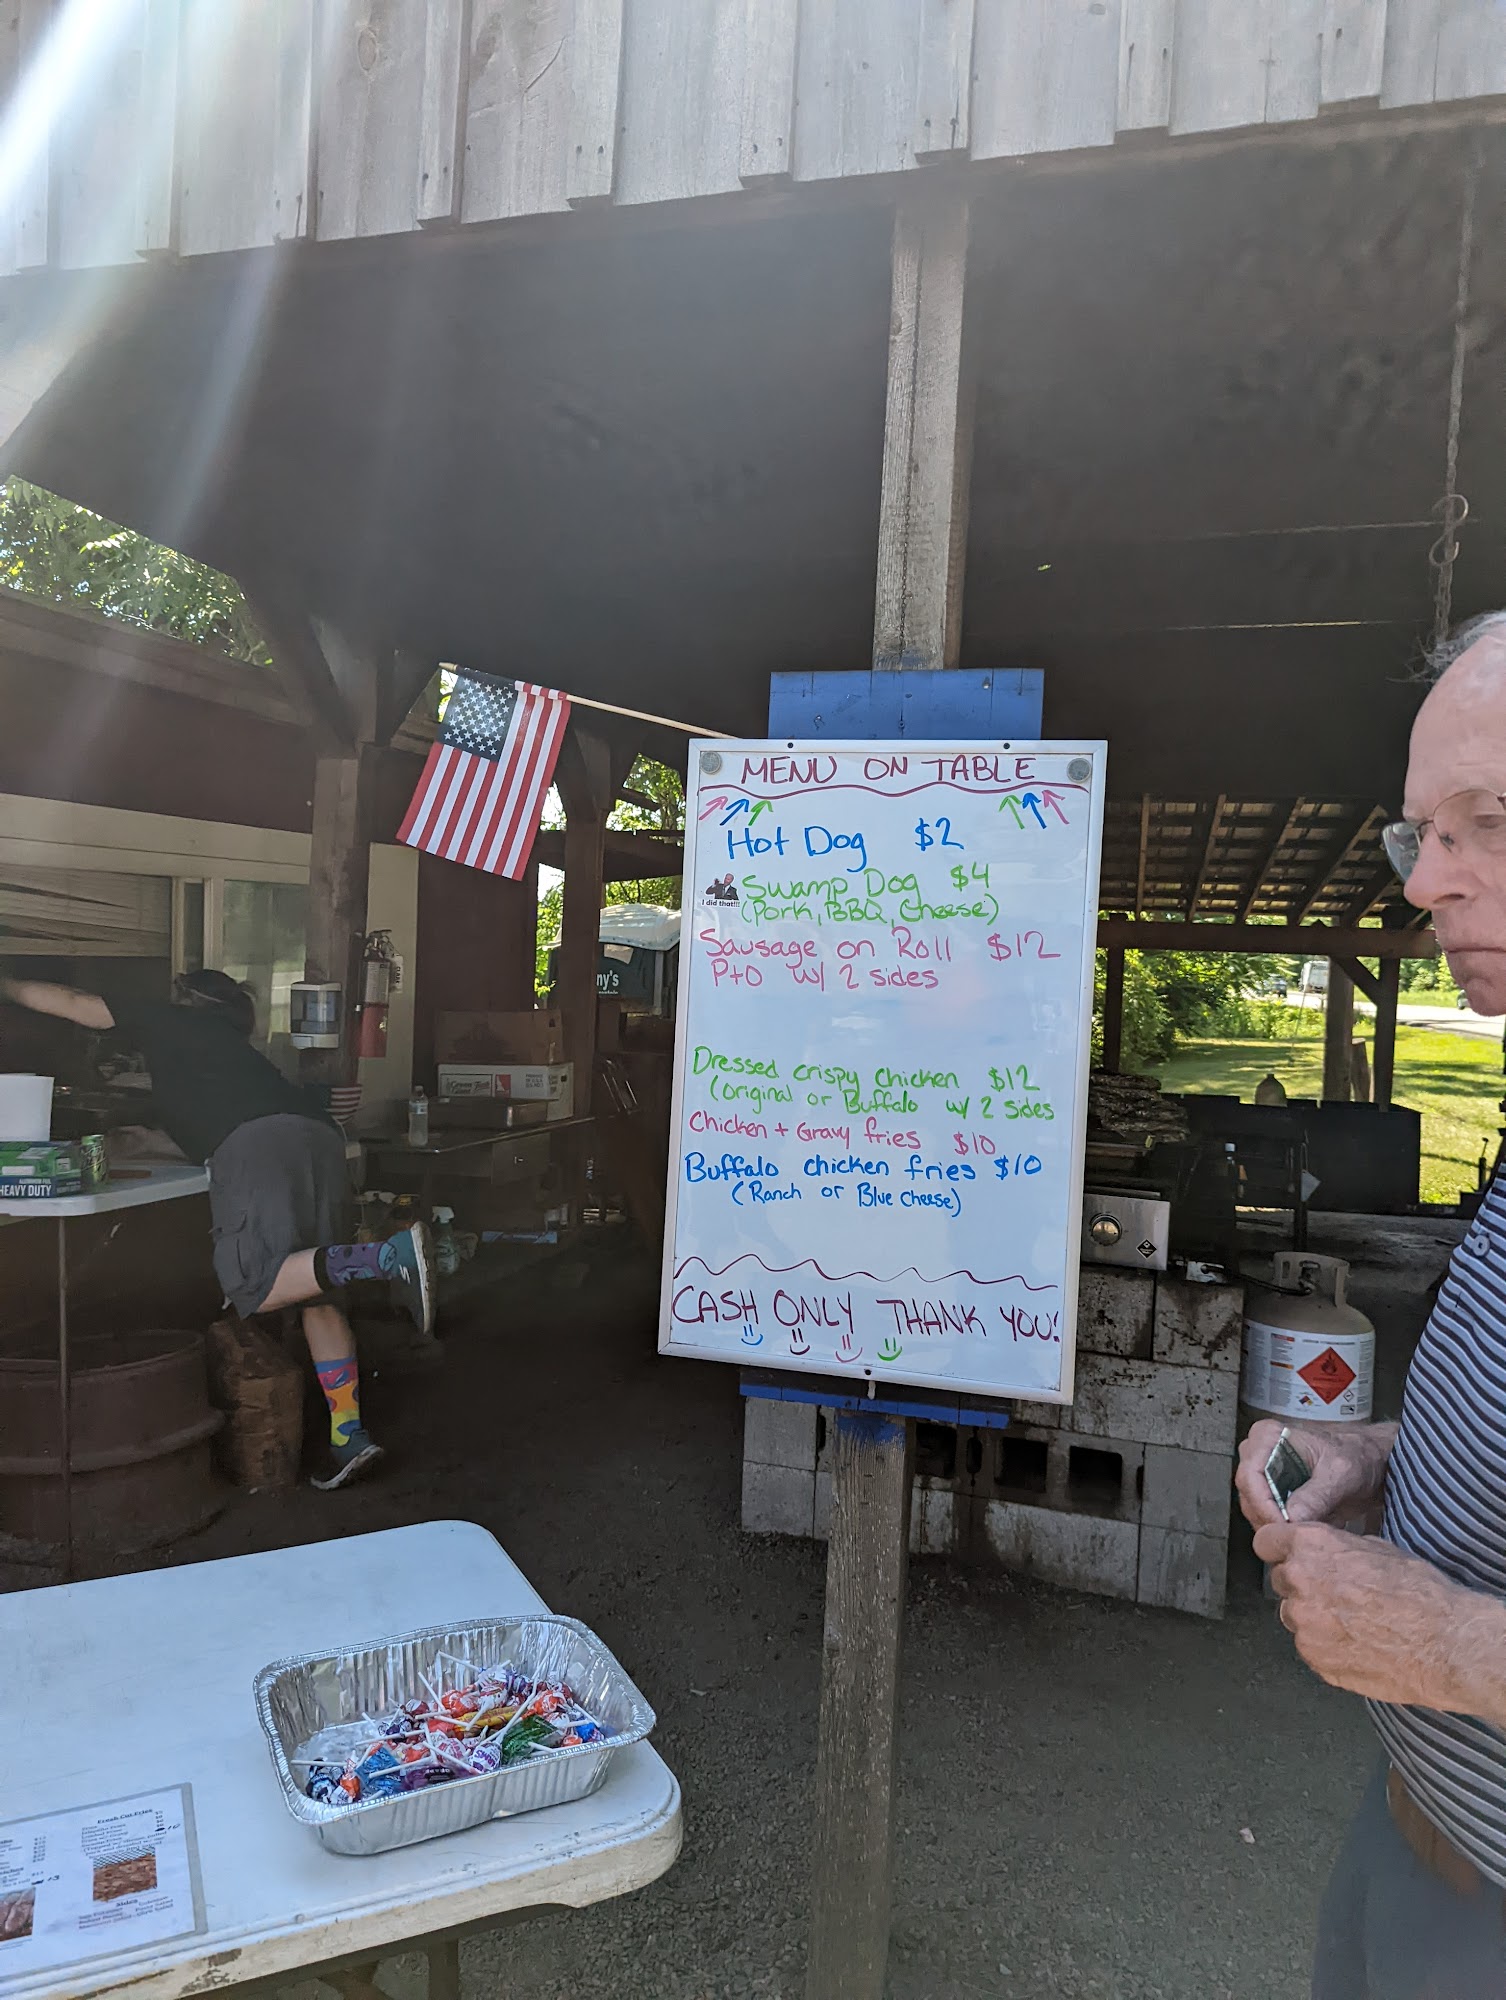 MENU ON TABLE
Hot Dog $2
I did that!!!
Swamp Dog $4
(Pork, BBQ, Cheese)
Sausage on Roll $12
P+O w/ 2 sides
Dressed crispy chicken $12
(original or Buffalo w/ 2 sides
Chicken + Gravy fries $10
Buffalo chicken fries $10
(Ranch or Blue Cheese)
CASH ONLY THANK YOU!
ny's
HEAVY DUTY
Fresh Cut Fries
Sides